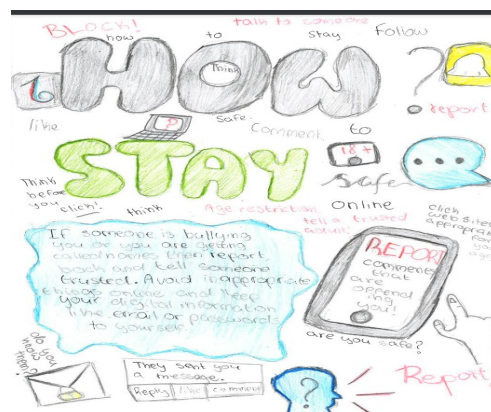 BLOCK!
talk to someone
how to stay
Follow
HOW
Think
report
like
Safe
Comment
to
STAY
18+
safe
Think
before
you
click!
think
Age restriction
online
tell a trusted
adult
click
websites
appropriate
for
your
age
If someone is bullying
you or you are getting
called names then report,
block and tell someone
trusted. Avoid inappropriate
things online and keep
your digital information
like email or passwords
to yourself.
REPORT
comments
that
are
offending
you!
are you safe?
do you
know
them?
They sent you
a message.
Reply like comment
Report